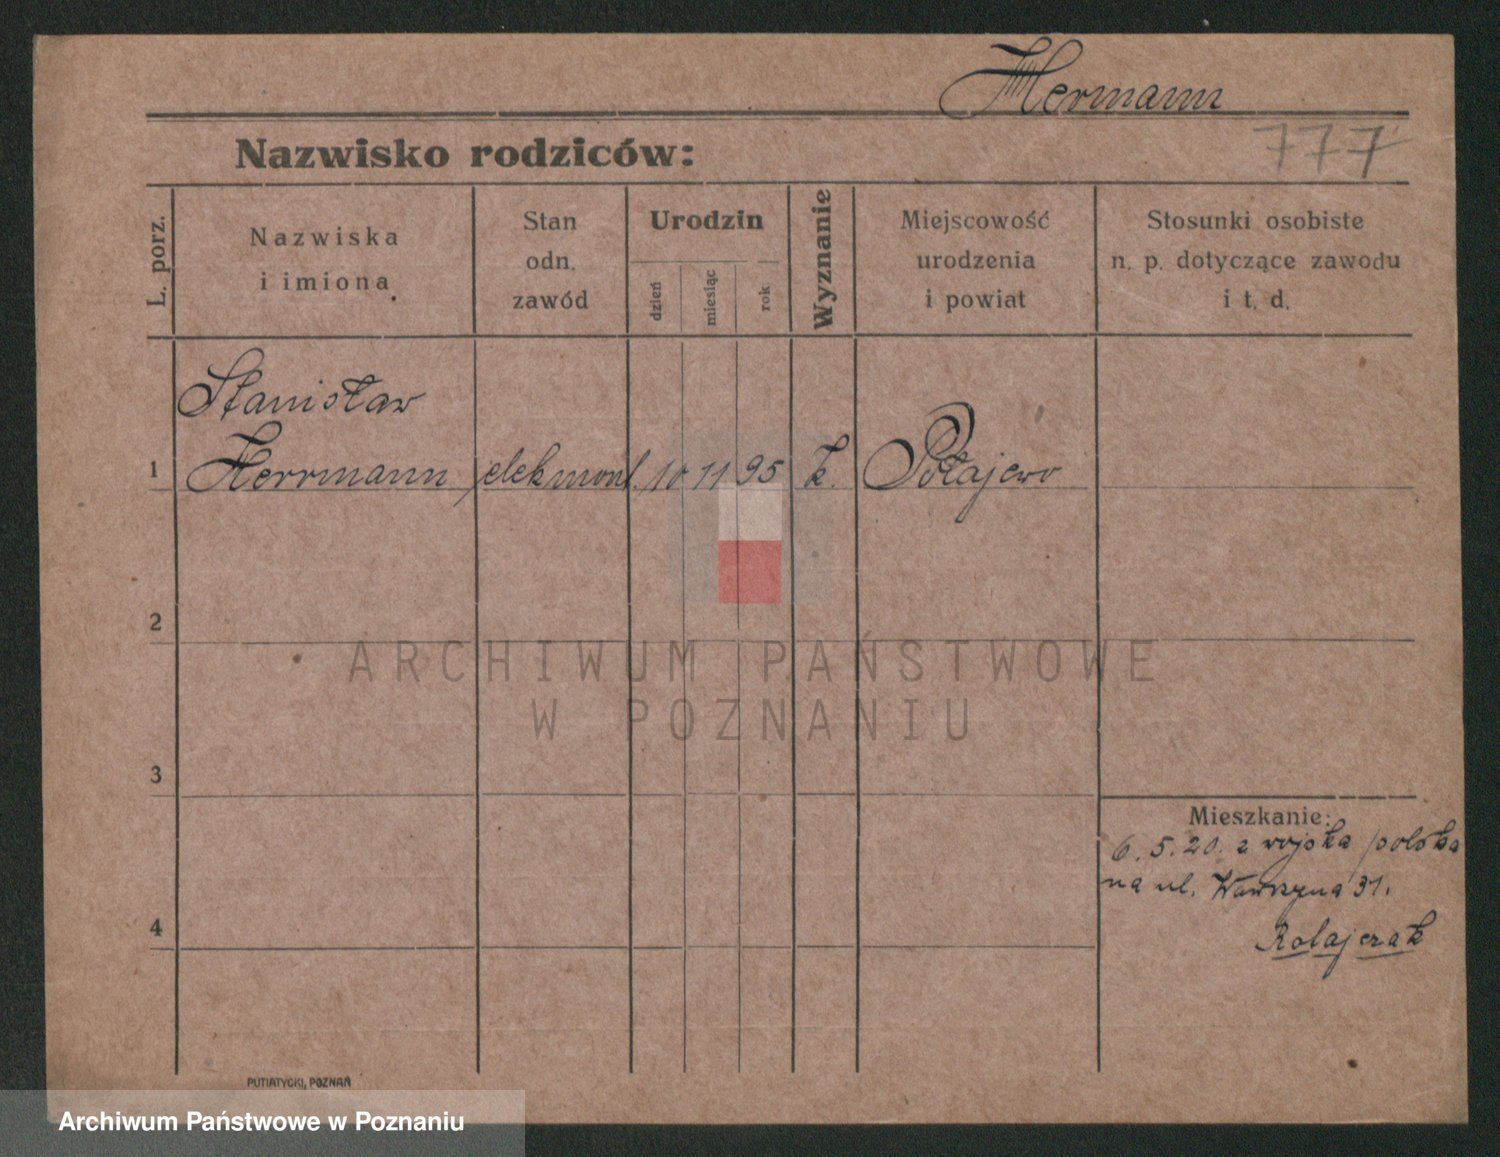 Hermann
777
Nazwisko rodziców:
L. porz.
Nazwiska
i imiona
Stan
odn.
zawód
Urodzin
dzień
miesiąc
rok
Wyznanie
Miejscowość
urodzenia
i powiat
Stosunki osobiste
n. p. dotyczące zawodu
i t. d.
Stanisław
1 Herrmann elekmont. 10 11 95 k. Połajewo
2
ARCHIWUM PAŃSTWOWE
W POZNANIU
3
Mieszkanie:
6. 5. 20. z wojska polska
na ul. Wawrzyna 31.
4
Ratajczak
PUTIATYCKI, POZNAŃ
Archiwum Państwowe w Poznaniu